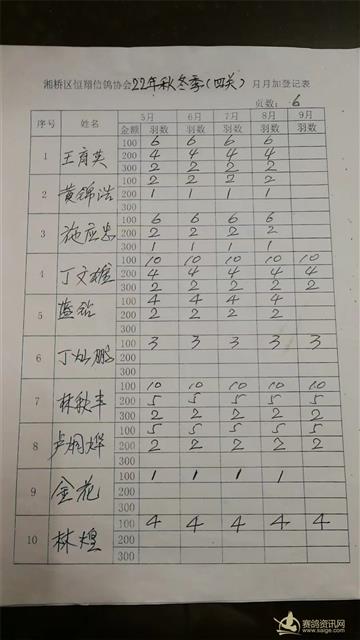 湘桥区恒翔信鸽协会22年秋冬季(四关)月月加登记表
页数：6
序号 姓名 5月 6月 7月 8月 9月
金额 羽数 羽数 羽数 羽数 羽数
1 王育英 100 6 6 6 6
200 4 4 4 4
300 2 2 2 2
2 黄锦浩 100 2 2 2 2
200 1 1 1 1
300
3 施应忠 100 6 6 6 6
200 2 2 2 2
300 1 1 1 1
4 丁文雄 100 10 10 10 10 10
200 4 4 4 4 4
300 2 2 2 2 2
5 蓝 100 4 4 4 4
200 2 2 2 2
300
6 丁灿鹏 100 3 3 3 3 3
200
300
7 林秋丰 100 10 10 10 10 10
200 5 5 5 5 5
300 2 2 2 2 2
8 卢炯烨 100 5 5 5 5 5
200 2 2 2 2 2
300
9 金花 100 1 1 1 1
200
300
10 林煌 100 4 4 4 4 4
200
300
赛鸽资讯网
www.saige.com